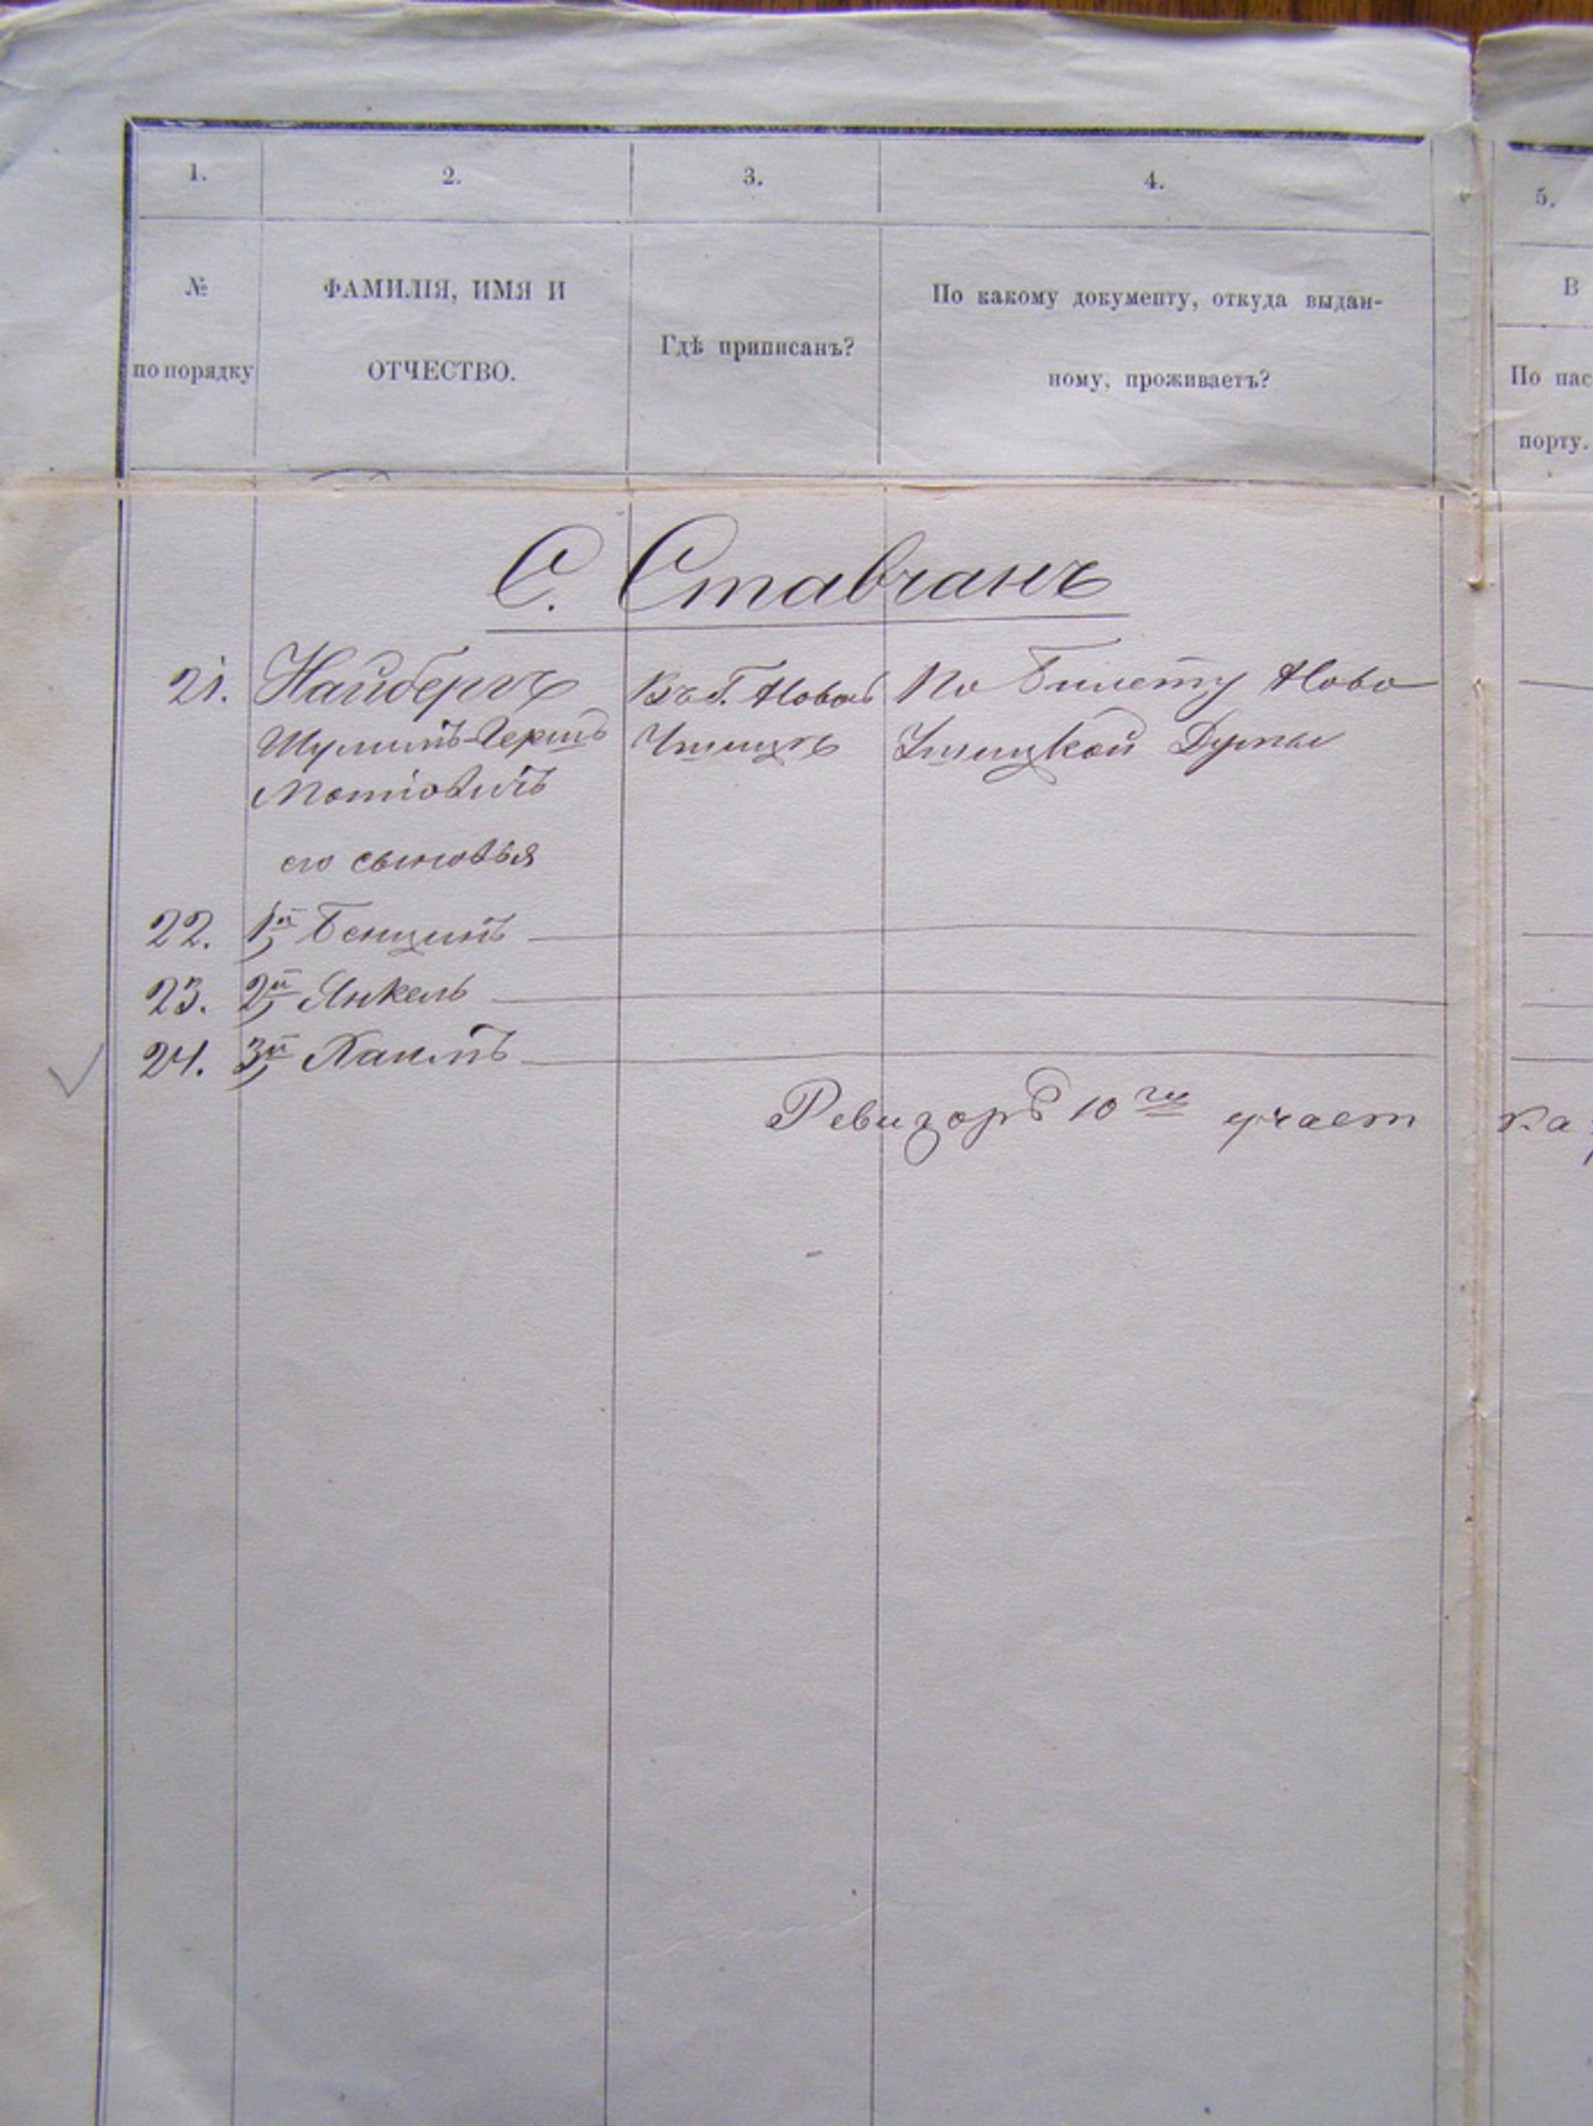 1. 2. 3. 4. 5.
№ ФАМИЛІЯ, ИМЯ И По какому документу, откуда выдан- В
Гдѣ приписанъ?
по порядку ОТЧЕСТВО. ному, проживаетъ? По пас
порту.
С. Ставчанъ
21. Найбергъ Въ г. Новой По билету Ново
Шулимъ-Гершъ Ушицѣ Ушицкой Думы
Мотіовичъ
его сыновья
22. 1й Бенцинъ
23. 2й Янкель
24. 3й Хаимъ
Ревизоръ 10го участ ка